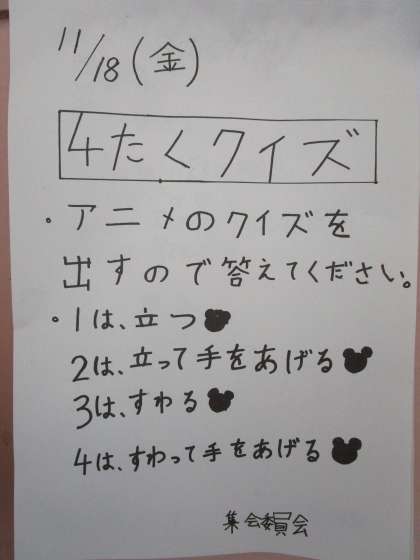 11/18(金)
4たくクイズ
・アニメのクイズを
出すので答えてください。
・1は、立つ
2は、立って手をあげる
3は、すわる
4は、すわって手をあげる
集会委員会